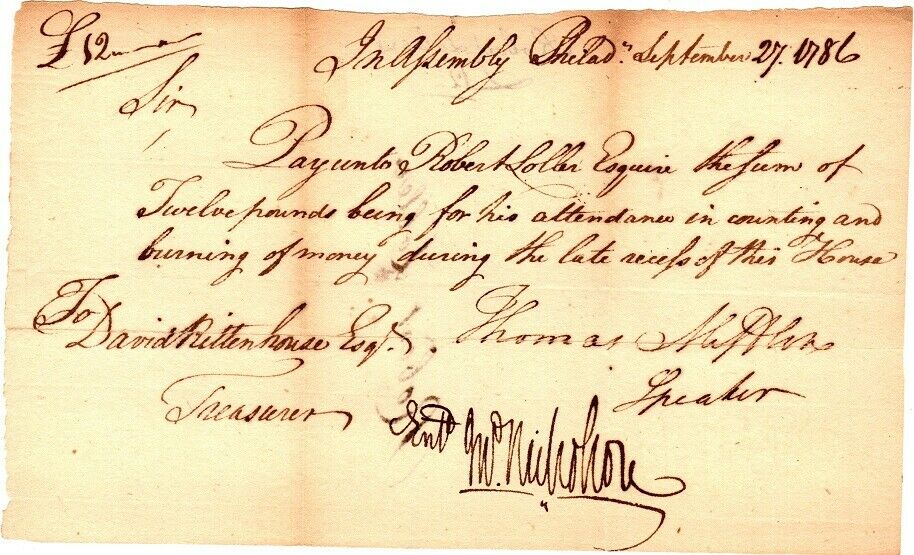 £12
In Assembly Philada. September 27. 1786
Sir
Pay unto Robert Loller Esquire the sum of
Twelve pounds being for his attendance in counting and
burning of money during the late recess of this House
Thomas Mifflin
Speaker
To
David Rittenhouse Esqr.
Treasurer
Entd Jno. Nicholson